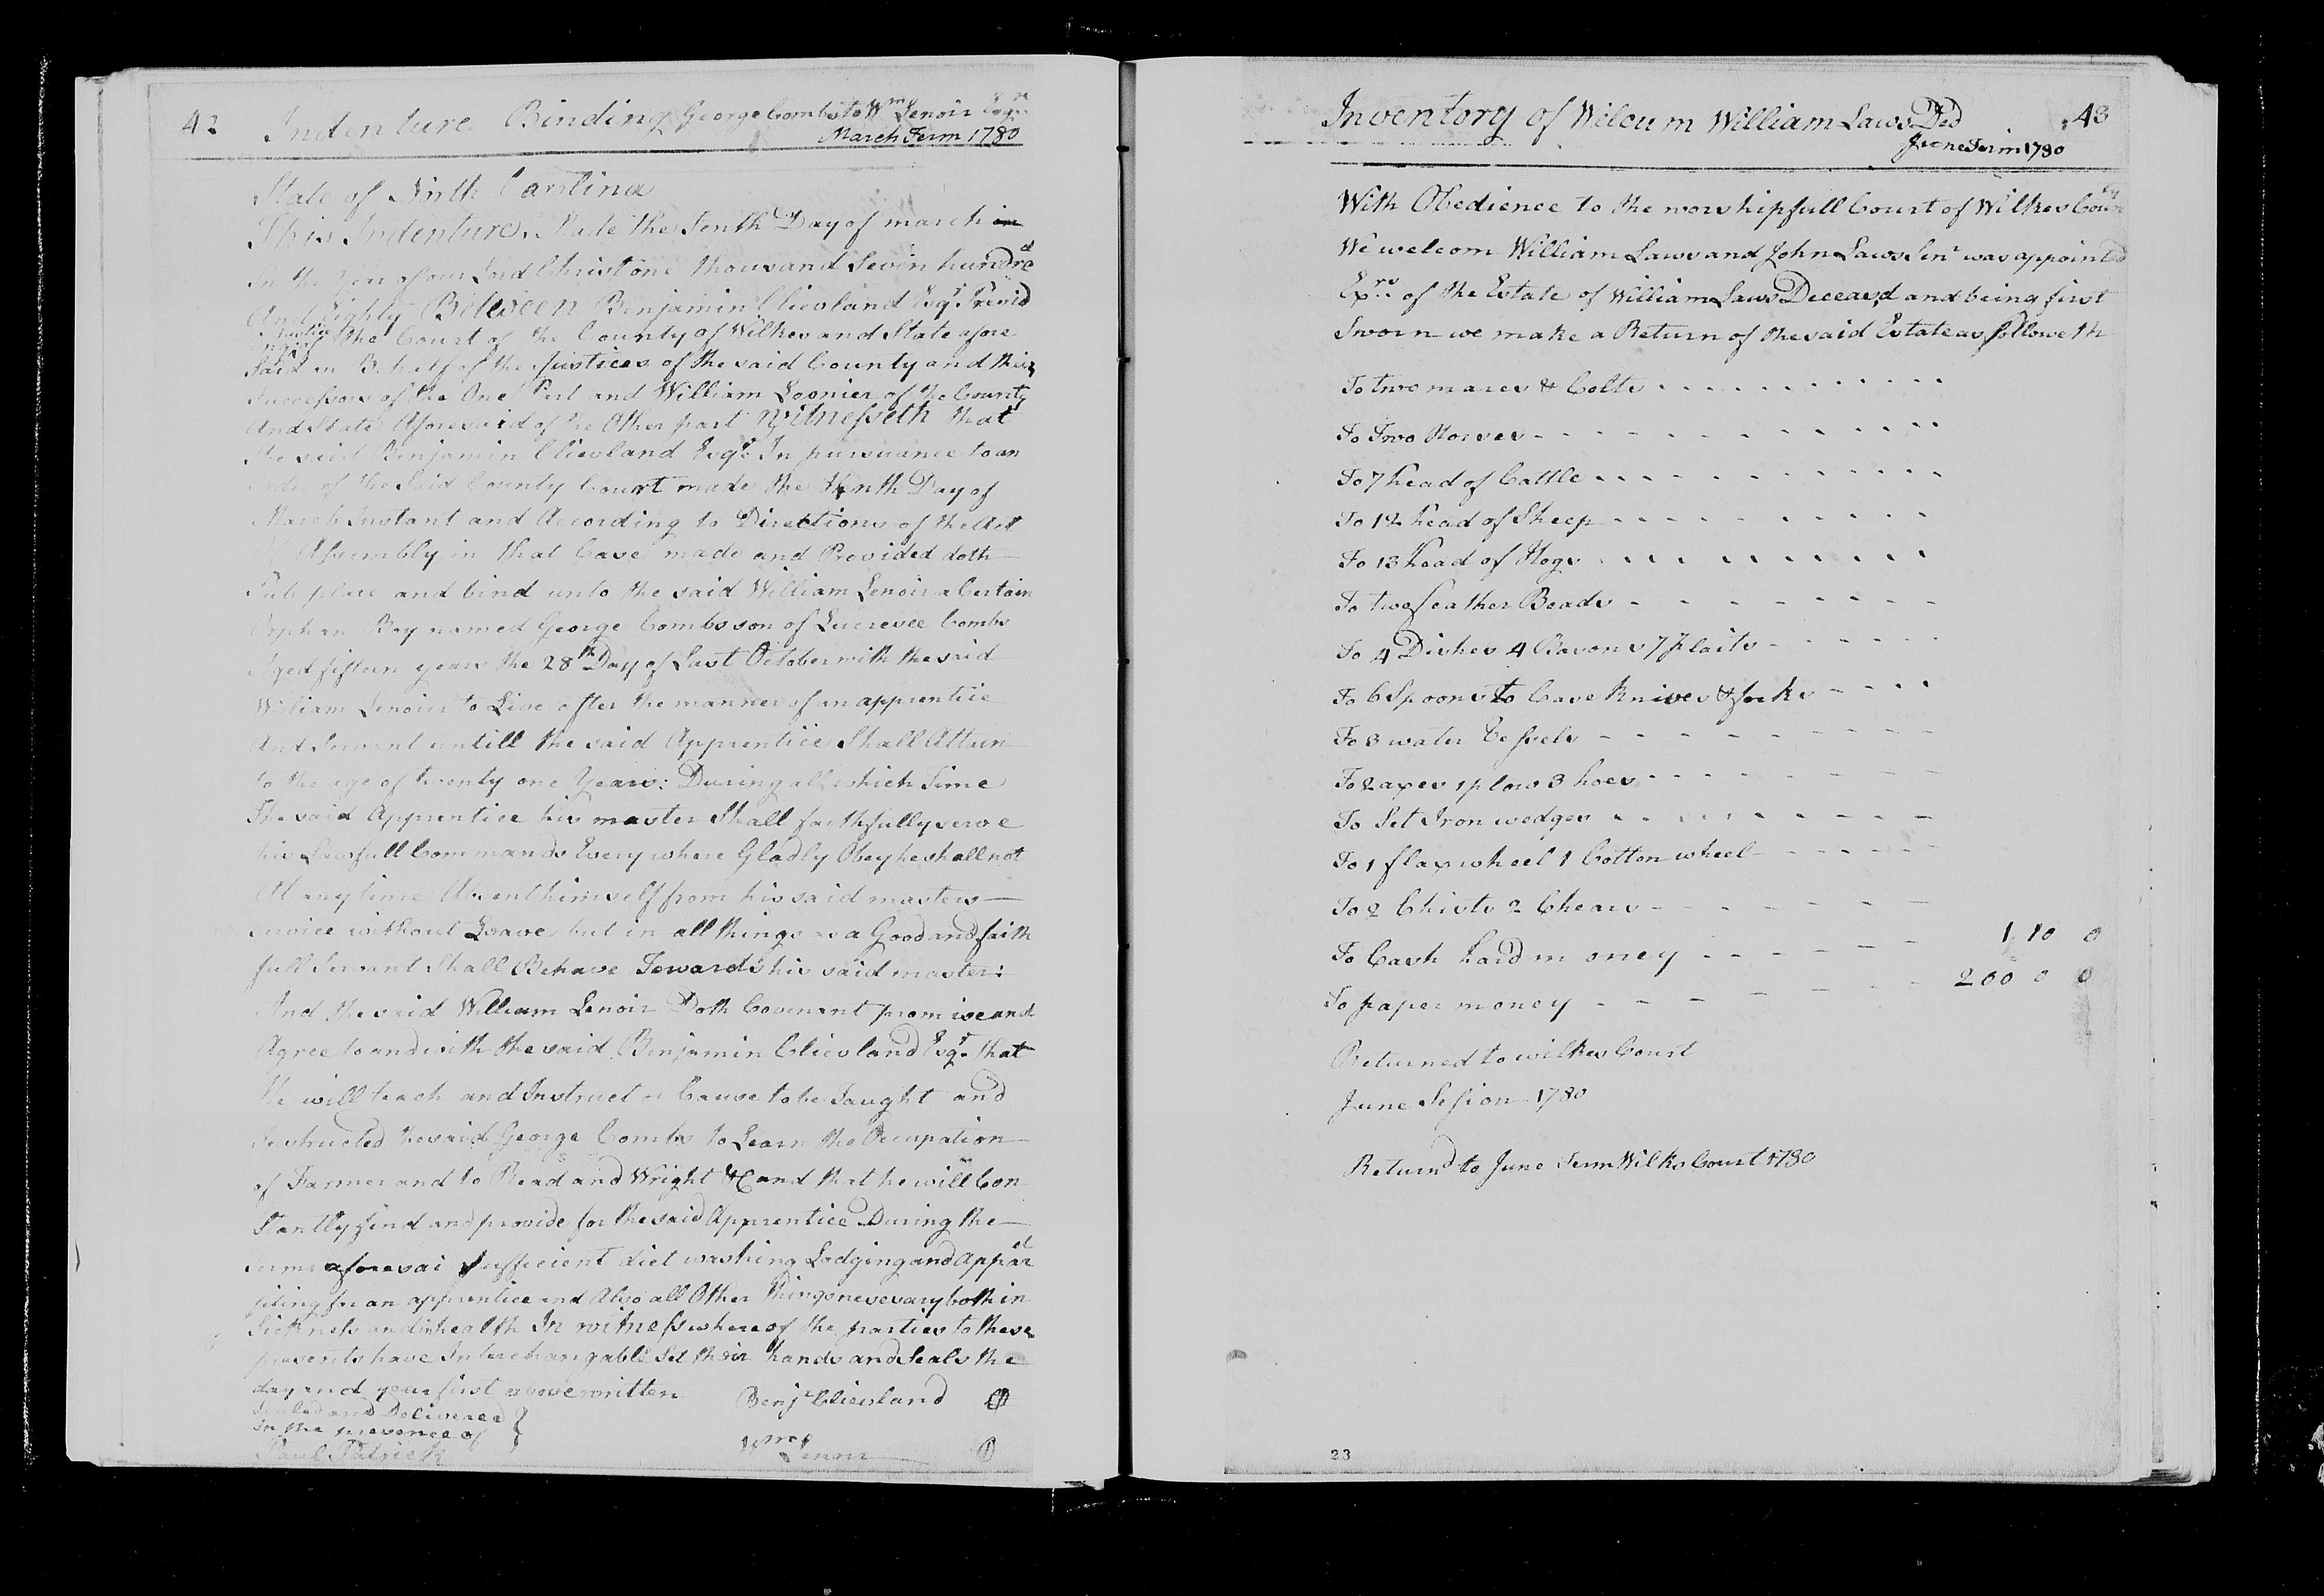 42 Indenture Binding George Combs to Wm Lenoir Esqr
March Term 1780
State of North Carolina
This Indenture, Made the Tenth Day of march in
In the Year of our Lord Christ one thousand Seven hundred
And Eighty Between Benjamin Clievland Esqr Presid
ing Justice of the Court of the County of Wilkes and State afore
Said in Behalf of the Justices of the said County and their
Successors of the One Part and William Loonier of the County
And State Aforesaid of the Other part Witnesseth that
the said Benjamin Clievland Esqr In pursuance to an
order of the Said County Court made the Tenth Day of
March Instant and According to Directions of the Act
Assembly in that Case made and Provided doth
Put place and bind unto the said William Lenoir a Certain
Orphan Boy named George Combs son of Lucresee Combs
Aged fifteen years the 28th Day of Last October with the said
William Lenoier to Live after the manner of an apprentice
And Servant untill the said Apprentice Shall Attain
to the age of twenty one Years: During all which Time
The said Apprentice his master Shall faithfully serve
his Lawfull Commands Every where Gladly Obey he shall not
At any time Absent himself from his said masters
service without Leave, but in all things as a Good and faith
full Servant Shall Behave Towards his said master:
And the said William Lenoir Doth Covenant promise and
Agree to and with the said Benjamin Clievland Esqr that
He will teach and Instruct or Cause to be Taught and
Instructed the said George Combs to Learn the Occupation
of Farmer and to Read and Wright &C and that he will Con
stantly find and provide for the said Apprentice During the
Term aforesai Sufficient diet washing Lodging and Apparel
fiting for an apprentice and Also all Other Things nesesary both in
Sickness and in health In witness whereof the parties to these
presents have Interchangable Set their hands and Seals the
day and year first above written Benj Clievland
Sealed and Delivered
In the presence of
Paul Patrick Wm Lenoir
Inventory of Wilcum William Laws Decd 43
June Term 1780
With Obedience to the worshipfull Court of Wilkes County
We welcom William Laws and John Laws Senr was appointed
Exrs of the Estate of William Laws Deceasd and being first
Sworn we make a Return of the said Estate as followeth
To two mares & Colts
To Two Horses
To 7 head of Cattle
To 12 head of Sheep
To 13 head of Hogs
To two feather Beads
To 4 Dishes 4 Basons 7 plaits
To 6 Spoons to Case Knives & forks
To 3 water Vessels
To 2 axes 1 plow 3 hoes
To Set Iron wedges
To 1 flax wheel 1 Cotton wheel
To 2 Chists 2 Chears
To Cash hard money 1 10 0
To paper money 200 0 0
Returned to wilkes Court
June Session 1780
Returnd to June Term Wilks Court 1780
23